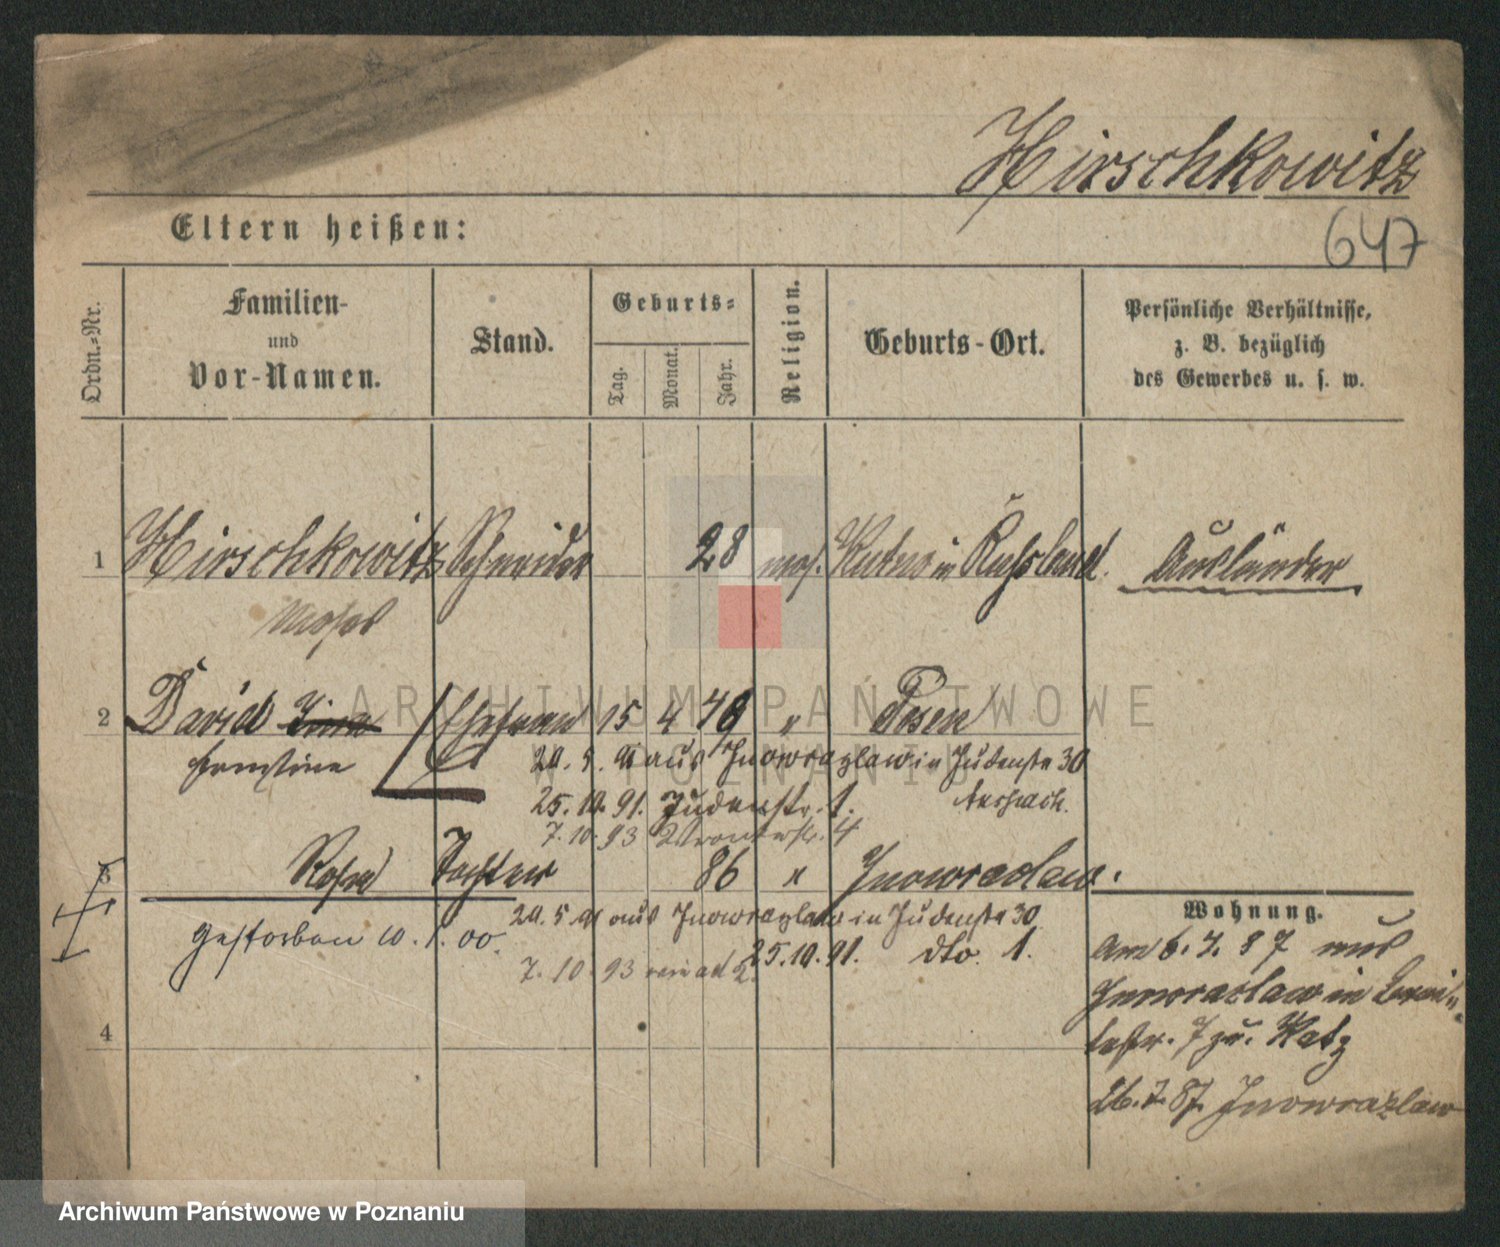 Hirschkowitz
647
Eltern heißen:
Ordn.-Nr.
Familien-
und
Vor-Namen.
Stand.
Geburts-
Tag.
Monat.
Jahr.
Religion.
Geburts-Ort.
Persönliche Verhältnisse,
z. B. bezüglich
des Gewerbes u. s. w.
1 Hirschkowitz Schneider 28 mos. Kutno in Russland. Ausländer
Moses
2 David Ehefrau 15 4 48 " Posen
Ernstine
20. 5. 91 aus Inowrazlaw in Judenstr 30
25. 10. 91. Judenstr. 1.
7. 10. 93 4
3 Rosa Tochter 86 " Inowrazlaw.
20. 5. 91 aus Inowrazlaw in Judenstr 30
gestorben 10. 1. 00.
25. 10. 91. dto. 1.
7. 10. 93
Wohnung.
am 6. 7. 87 aus
Inowrazlaw in
7 zu. Katz
26. 7. 87. Inowrazlaw
4
ARCHIWUM PAŃSTWOWE
W POZNANIU
Archiwum Państwowe w Poznaniu